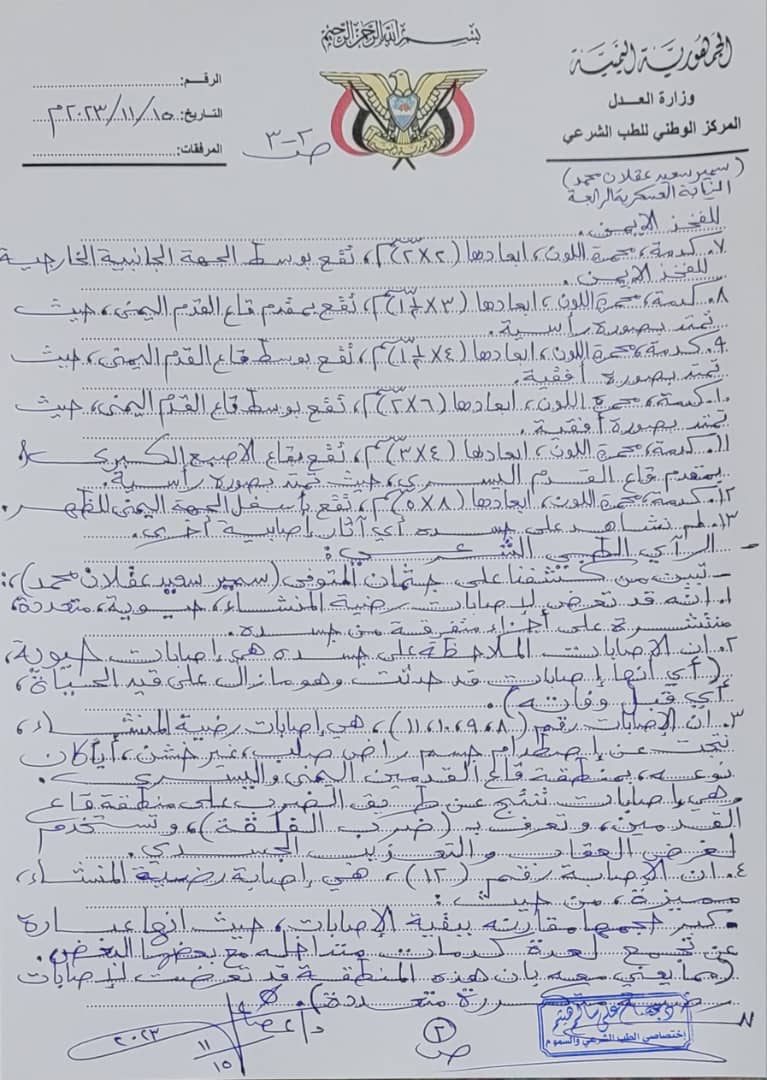 بسم الله الرحمن الرحيم
الجمهورية اليمنية
وزارة العدل
المركز الوطني للطب الشرعي
الرقم:
التاريخ: ١٥/١١/٢٠٢٣م
المرفقات:
ص ٢-٣
(سمير سعيد عقلان محمد)
النيابة العسكرية الرابعة
للفخذ الايمن.
٧. كدمة، محمرة اللون، ابعادها (٢×٢ سم)، تقع بوسط الجهة الجانبية الخارجية
للفخذ الايمن.
٨. كدمة، محمرة اللون، ابعادها (٣×١½ سم)، تقع بمقدم قاع القدم اليمنى، حيث
تمتد بصورة رأسية.
٩. كدمة، محمرة اللون، ابعادها (٤×١½ سم)، تقع بوسط قاع القدم اليمنى، حيث
تمتد بصورة أفقية.
١٠. كدمة، محمرة اللون، ابعادها (٦×٢ سم)، تقع بوسط قاع القدم اليمنى، حيث
تمتد بصورة أفقية.
١١. كدمة، محمرة اللون، ابعادها (٤×٣ سم)، تقع بقاع الاصبع الكبرى
بمقدم قاع القدم اليسرى، حيث تمتد بصورة رأسية.
١٢. كدمة، محمرة اللون، ابعادها (٨×٥ سم)، تقع بأسفل الجهة اليمنى للظهر.
١٣. لم نشاهد على جسده أي آثار إصابية أخرى.
- الرآي الطبي الشرعي:
- تبين من كشفنا على جثمان المتوفى (سمير سعيد عقلان محمد)،:
١. انه قد تعرض لإصابات رضية المنشاء، حيوية، متعددة،
منتشرة على أجزاء متفرقة من جسده.
٢. ان الإصابات الملاحظة على جسده هي إصابات حيوية،
(أي أنها إصابات قد حدثت وهو مازال على قيد الحياة،
أي قبل وفاته).
٣. ان الإصابات رقم (٨،٩،١٠،١١)، هي إصابات رضية المنشاء،
نتجت عن إصطدام جسم راض صلب، غير خشن، أياً كان
نوعه، بمنطقة قاع القدمين اليمنى واليسرى.
وهي إصابات تنتج عن طريق الضرب على منطقة قاع
القدمين، وتعرف بـ (ضرب الفلقة)، وتستخدم
لغرض العقاب والتعذيب الجسدي.
٤. ان الإصابة رقم (١٢)، هي إصابة رضية المنشاء،
مميزة، من حيث:
• كبر حجمها مقارنه ببقية الإصابات، حيث انها عبارة
عن تجمع لعدة كدمات متداخله مع بعضها البعض.
(مما يعني معه بان هذه المنطقة قد تعرضت لإصابات
رضية متكررة متعددة).
إختصاصي الطب الشرعي والسموم
ص ٢
١٥/١١/٢٠٢٣